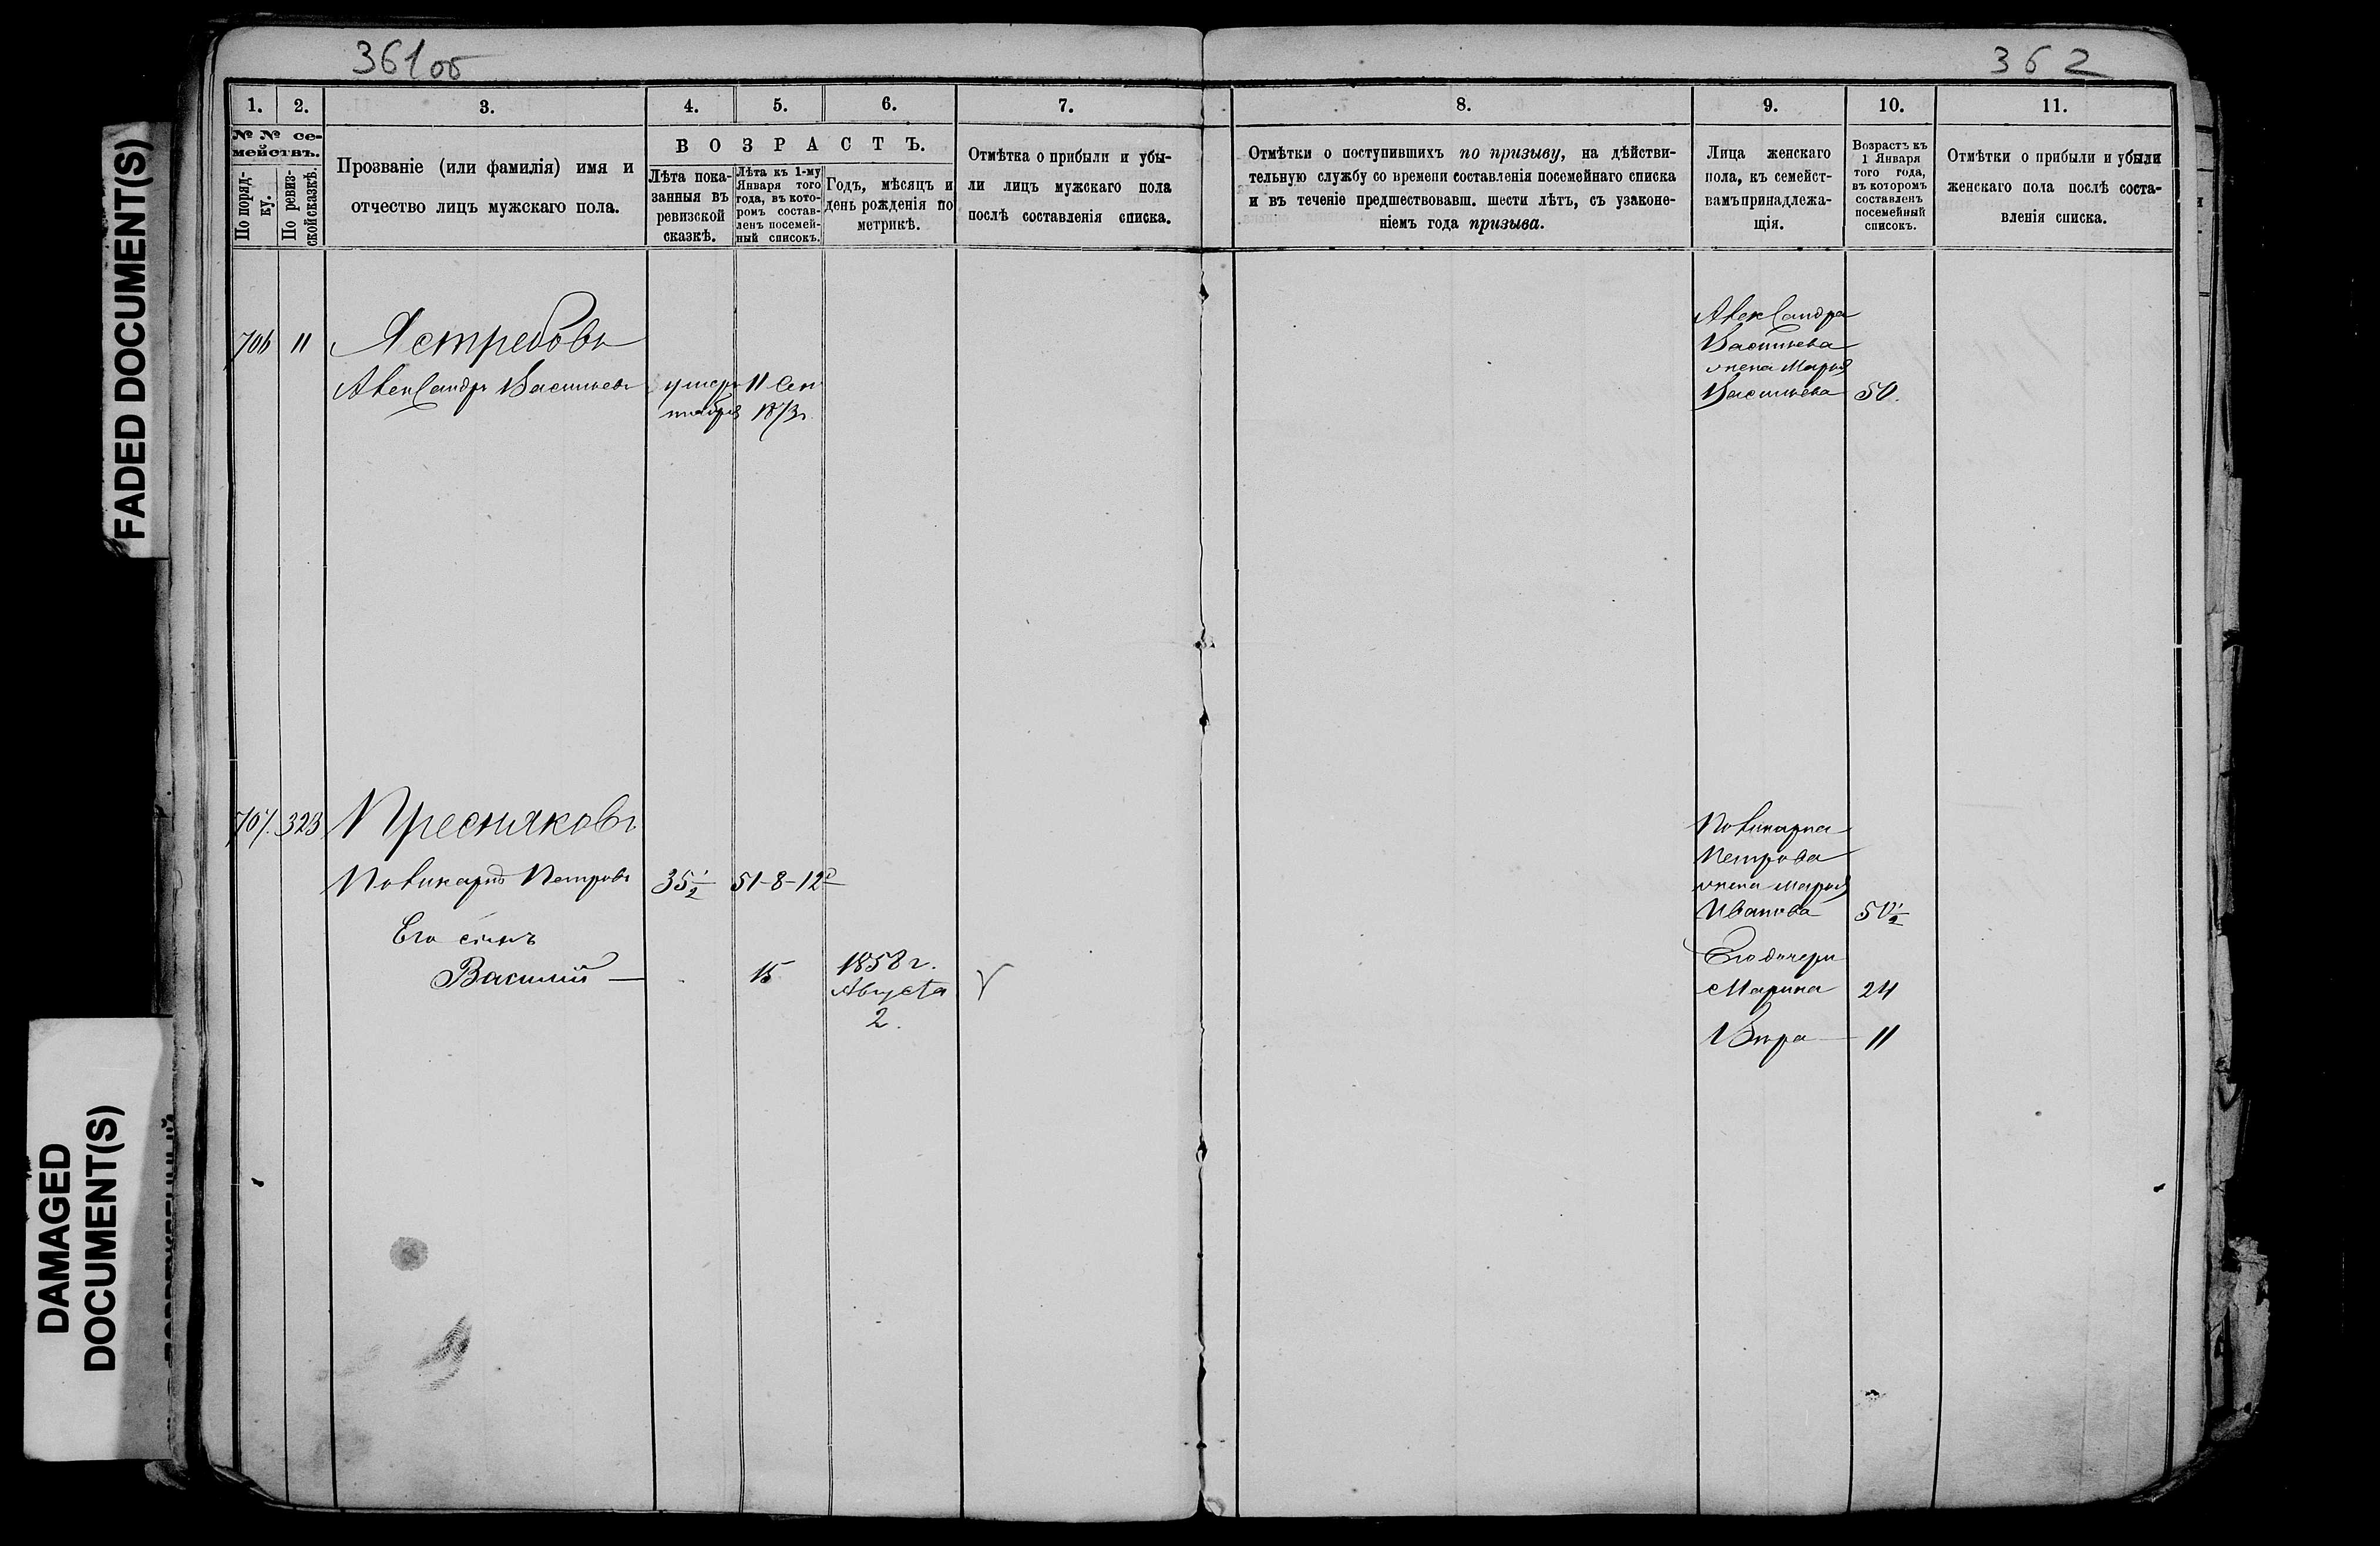 361об
362
1. 2. 3. 4. 5. 6. 7. 8. 9. 10. 11.
№ № се-
мействъ.
По поряд-
ку.
По ревиз-
ской сказкѣ.
Прозваніе (или фамилія) имя и
отчество лицъ мужскаго пола.
ВОЗРАСТЪ.
Лѣта пока-
занныя въ
ревизской
сказкѣ.
Лѣта къ 1-му
Января того
года, въ кото-
ромъ состав-
ленъ посемей-
ный списокъ.
Годъ, мѣсяцъ и
день рожденія по
метрикѣ.
Отмѣтка о прибыли и убы-
ли лицъ мужскаго пола
послѣ составленія списка.
Отмѣтки о поступившихъ по призыву, на дѣйстви-
тельную службу со времени составленія посемейнаго списка
и въ теченіе предшествовавш. шести лѣтъ, съ узаконе-
ніемъ года призыва.
Лица женскаго
пола, къ семейст-
вамъ принадлежа-
щія.
Возрастъ къ
1 Января
того года,
въ которомъ
составленъ
посемейный
списокъ.
Отмѣтки о прибыли и убыли
женскаго пола послѣ соста-
вленія списка.
706 11 Ястребовъ
Александръ Васильевъ умеръ 11 Сен
тября 1873г.
Александра
Васильева
жена Марья
Васильева 50.
707. 323 Пресняковъ
Поликарпъ Петровъ 35½ 51-8-12
Его сынъ
Василій — 15 1858 г.
Августа
2.
Поликарпа
Петрова
жена Марья
Иванова 50½
Его дочери
Марина 24
Вѣра — 11
FADED DOCUMENT(S)
DAMAGED
DOCUMENT(S)